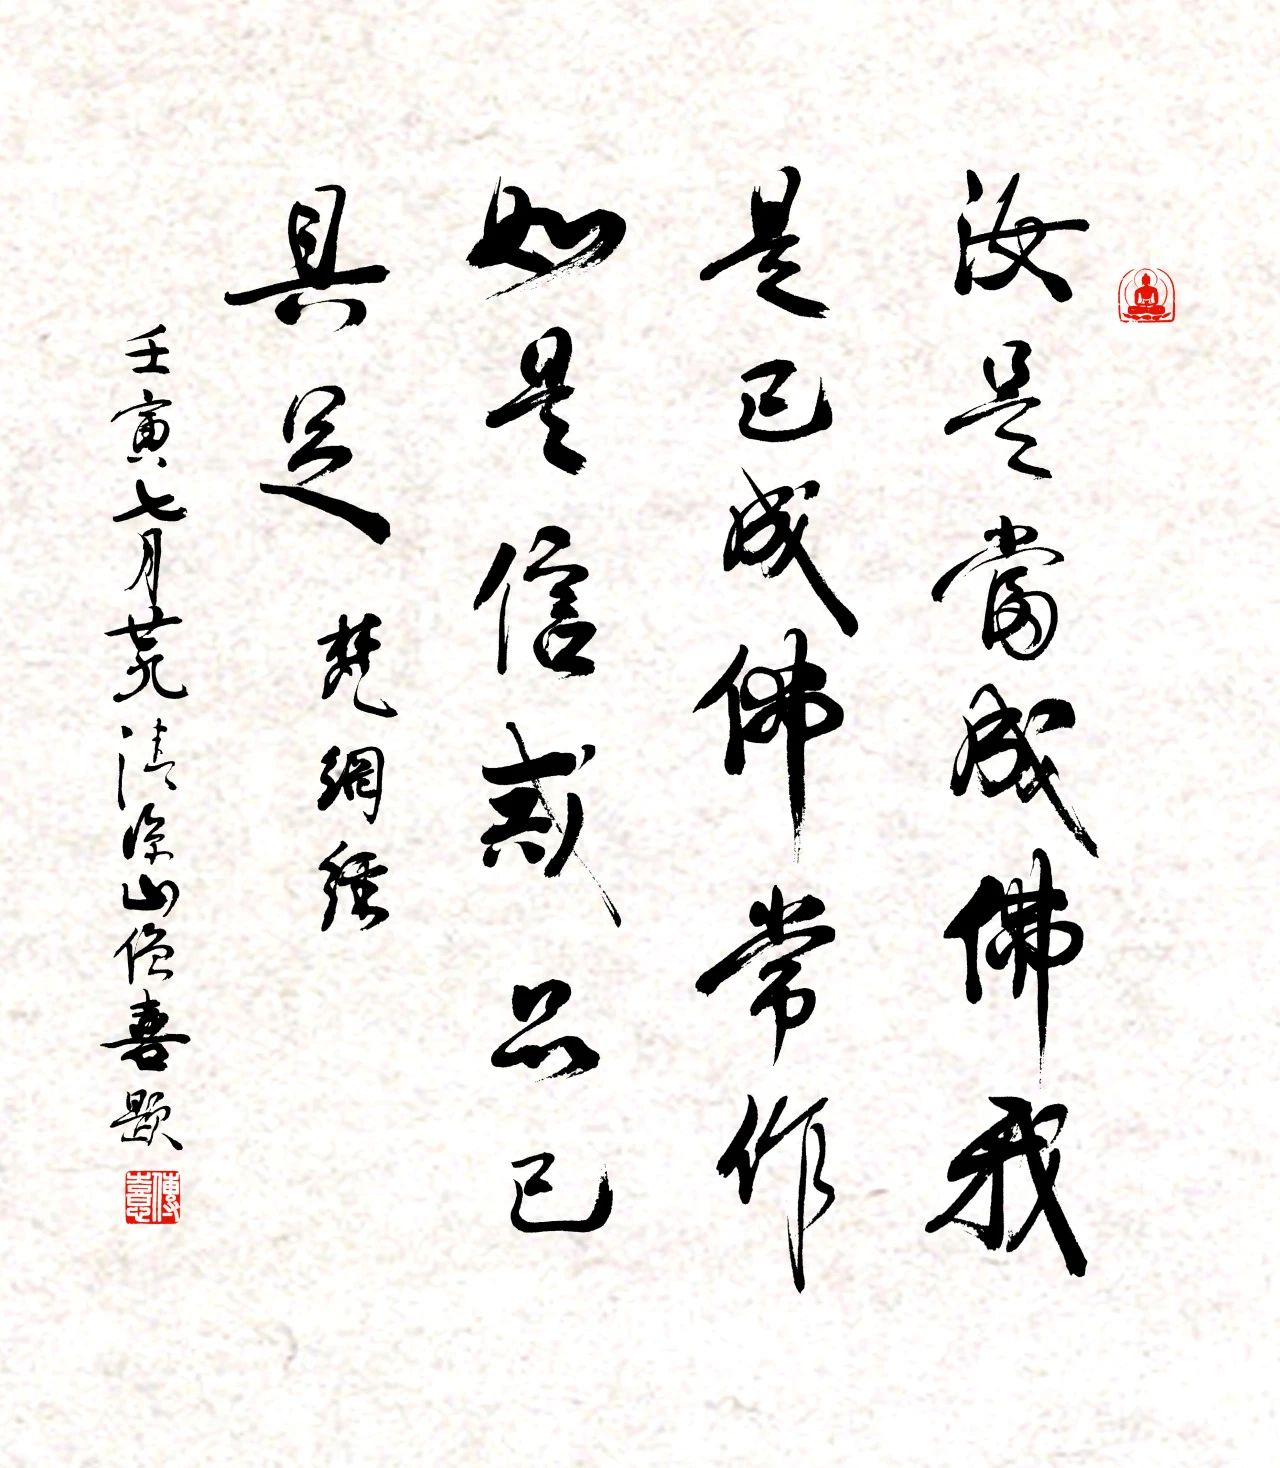 汝是當成佛我
是已成佛常作
如是信戒品已
具足
梵網經
壬寅七月廿九清涼山僧喜題
傳喜